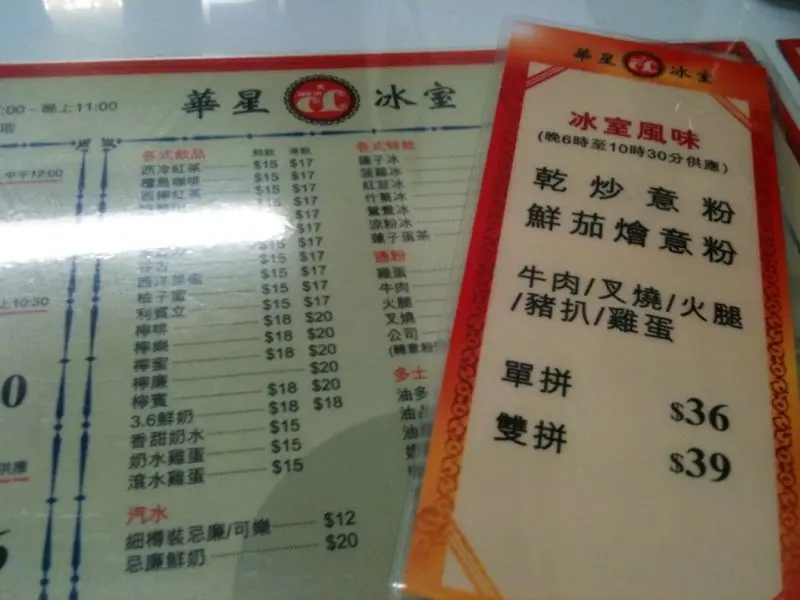 華星 冰室
:00 - 晚上11:00
中午12:00
上10:30
供應
各式飲品 熱飲 凍飲
西冷紅茶 $15 $17
檀島咖啡 $15 $17
西檸紅茶 $15 $17
$15 $17
$17
$15 $17
$15 $17
西洋菜蜜 $15 $17
柚子蜜 $15 $17
利賓立 $15 $17
檸啡 $18 $20
檸樂 $18 $20
檸蜜 $18 $20
檸廉 $20
檸賓 $18 $20
3.6鮮奶 $18 $18
香甜奶水 $15
奶水雞蛋 $15
滾水雞蛋 $15
汽水
細樽裝忌廉/可樂 $12
忌廉鮮奶 $20
各式特飲
蓮子冰
菠蘿冰
紅豆冰
什果冰
鴛鴦冰
涼粉冰
蓮子蛋茶
通粉
雞蛋
牛肉
火腿
叉燒
公司
(轉意粉
多士
油多
油占
油
華星 冰室
冰室風味
(晚6時至10時30分供應)
乾炒意粉
鮮茄燴意粉
牛肉/叉燒/火腿
/豬扒/雞蛋
單拼 $36
雙拼 $39